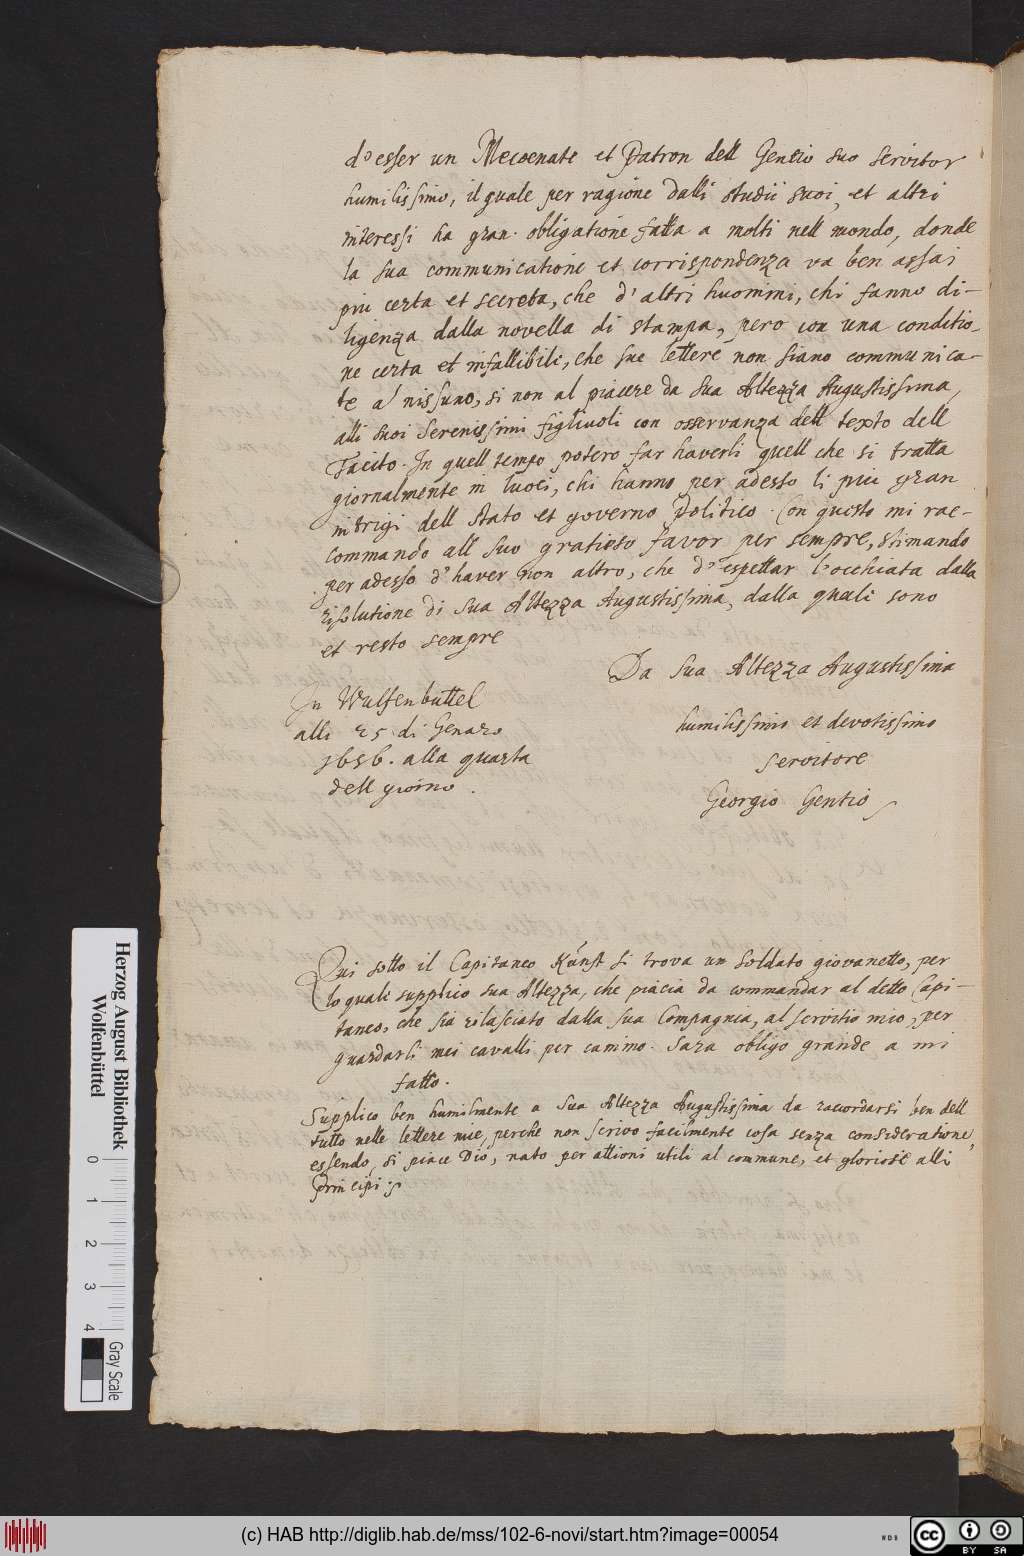 d'esser un Mecoenate et Patron dell Gentio suo servitor
humilissimo, il quale per ragione dalli studii suoi, et altri
interessi ha gran obligatione fatta a molti nell mondo, donde
la sua communicatione et corrispondenza va ben assai
piu certa et secreta, che d'altri huomini, chi fanno di-
ligenza dalla novella di stampa, pero con una conditio-
ne certa et infallibile, che sue lettere non siano communica-
te a' nissuno, si non al piacere da sua Altezza Augustissima,
alli suoi Serenissimi figliuoli con osservanza dell texto dell
Tacito. In quell tempo potero far haverli quell che si tratta
giornalmente in luoci, chi hanno per adesso li piu gran
intrigi dell stato et governo Politico. Con questo mi rac-
commando all suo gratioso favor per sempre, stimando
per adesso d'haver non altro, che d'espettar l'occhiata dalla
risolutione di sua Altezza Augustissima, dalla quale sono
et resto sempre
Da sua Altezza Augustissima
In Wulfenbuttel
alli 25 di Genaro
1656. alla quarta
dell giorno.
humilissimo et devotissimo
servitore
Georgio Gentio
Qui sotto il Capitaneo Künst si trova un soldato giovanetto, per
lo quale supplico sua Altezza, che piacia da commandar al detto Capi-
taneo, che sia rilasciato dalla sua Compagnia, al servitio mio, per
guardarli mei cavalli per camino. Sara obligo grande a mi
fatto.
Supplico ben humilmente a sua Altezza Augustissima da raccordarsi ben dell
tutto nelle lettere mie, perche non scrivo facilmente cosa senza consideratione,
essendo, si piace Dio, nato per attioni utili al commune, et gloriose alli
Principi.
Herzog August Bibliothek
Wolfenbüttel
0 1 2 3 4
Gray Scale
(c) HAB http://diglib.hab.de/mss/102-6-novi/start.htm?image=00054
WDB
cc BY SA